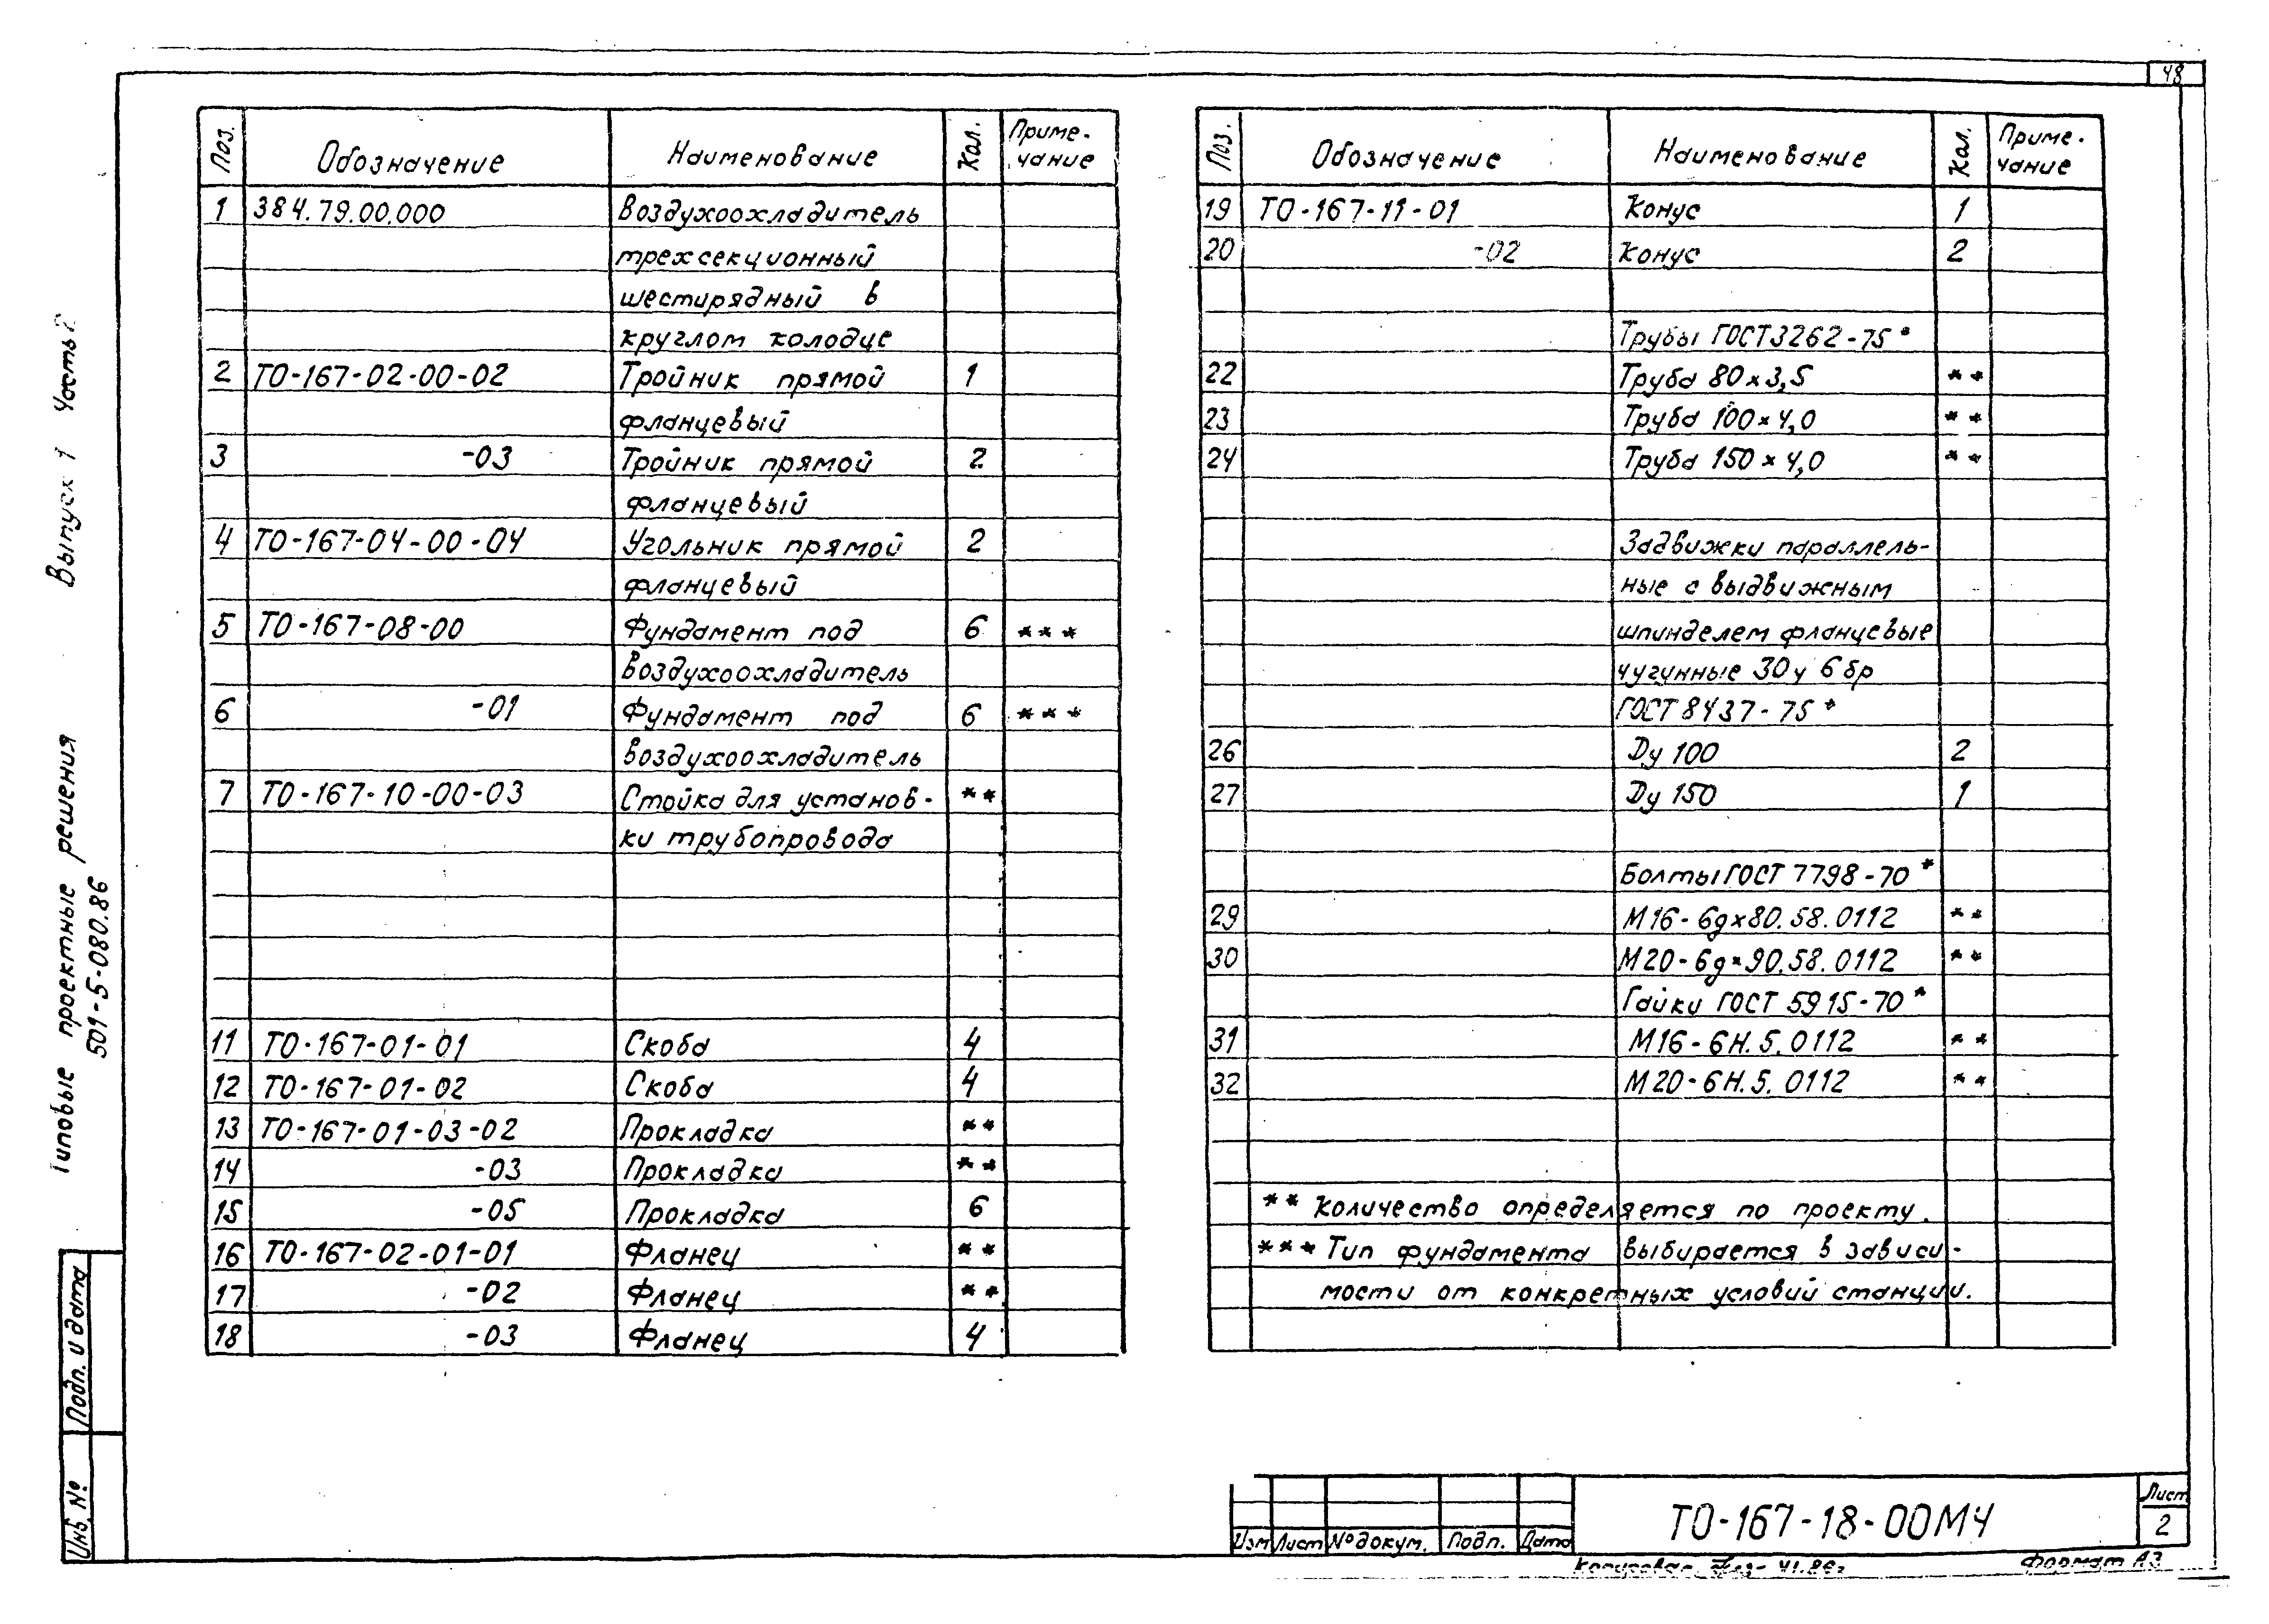 48
Поз. Обозначение Наименование Кол. Приме-чание
1 384.79.00.000 Воздухоохладитель
трехсекционный
шестирядный в
круглом колодце
2 ТО-167-02-00-02 Тройник прямой 1
фланцевый
3 -03 Тройник прямой 2
фланцевый
4 ТО-167-04-00-04 Угольник прямой 2
фланцевый
5 ТО-167-08-00 Фундамент под 6 ***
воздухоохладитель
6 -01 Фундамент под 6 ***
воздухоохладитель
7 ТО-167-10-00-03 Стойка для установ- **
ки трубопровода
11 ТО-167-01-01 Скоба 4
12 ТО-167-01-02 Скоба 4
13 ТО-167-01-03-02 Прокладка **
14 -03 Прокладка **
15 -05 Прокладка 6
16 ТО-167-02-01-01 Фланец **
17 -02 Фланец **
18 -03 Фланец 4
Поз. Обозначение Наименование Кол. Приме-чание
19 ТО-167-11-01 Конус 1
20 -02 Конус 2
Трубы ГОСТ 3262-75*
22 Труба 80×3,5 **
23 Труба 100×4,0 **
24 Труба 150×4,0 **
Задвижки параллель-
ные с выдвижным
шпинделем фланцевые
чугунные 30ч 6бр
ГОСТ 8437-75*
26 Ду 100 2
27 Ду 150 1
Болты ГОСТ 7798-70*
29 М16-6g×80.58.0112 **
30 М20-6g×90.58.0112 **
Гайки ГОСТ 5915-70*
31 М16-6Н.5.0112 **
32 М20-6Н.5.0112 **
** Количество определяется по проекту.
*** Тип фундамента выбирается в зависи-
мости от конкретных условий станции.
Типовые проектные решения Выпуск 1 Часть 2
501-5-080.86
Подп. и дата
Инв. №
Изм Лист № докум. Подп. Дата
ТО-167-18-00МЧ
Лист
2
Копировал
Формат А3